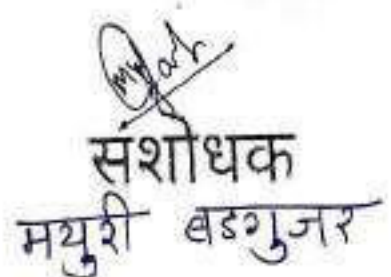 संशोधक
मयुरी बडगुजर